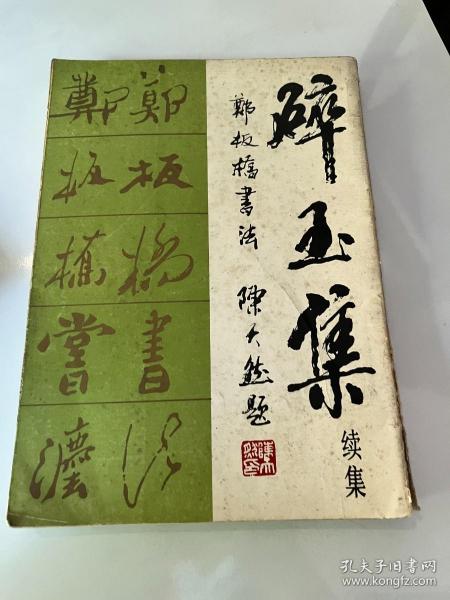 碎玉集
续集
郑板桥书法
陈大然题
鄭板橋書法
鄭板橋書法
孔夫子旧书网
www.kongfz.com